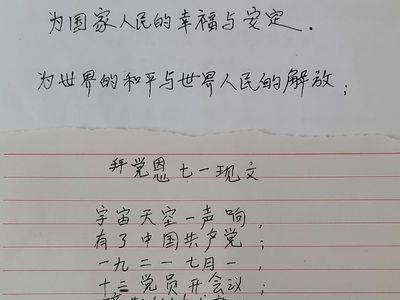 为国家人民的幸福与安定.
为世界的和平与世界人民的解放;
拜党恩七一现文
宇宙天空一声响,
有了中国共产党;
一九二一七月一,
十三党员开会议;